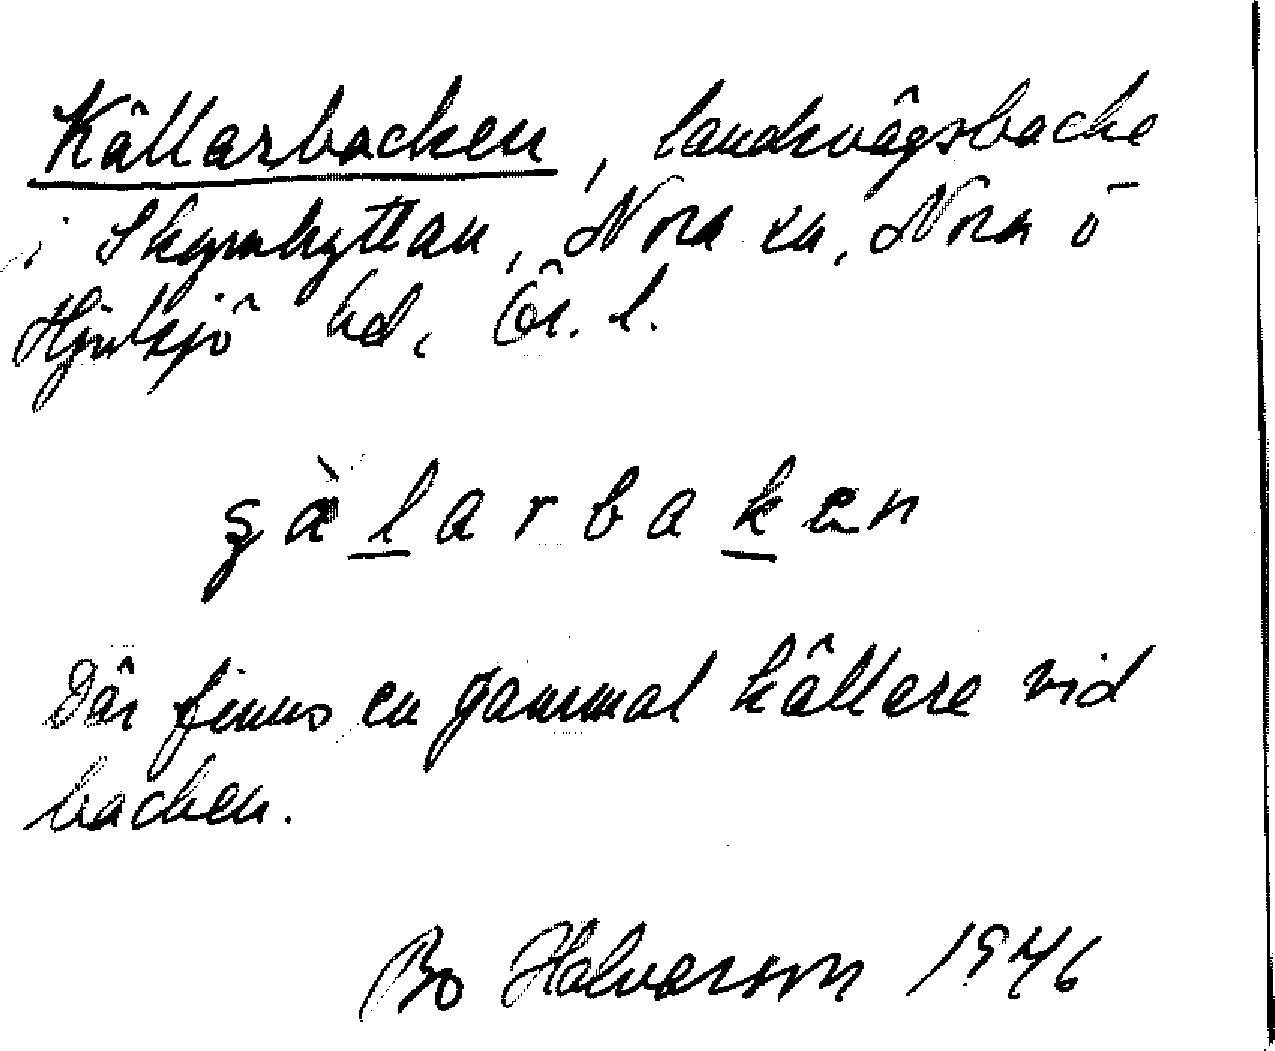 Källarbacken, landsvägsbacke
i Skyrnhyttan, Nora sn, Nora o
Hjulsjö hd, Ör. l.
ʂä̀larbaken
Där finns en gammal källare vid
backen.
Bo Halvarson 1946